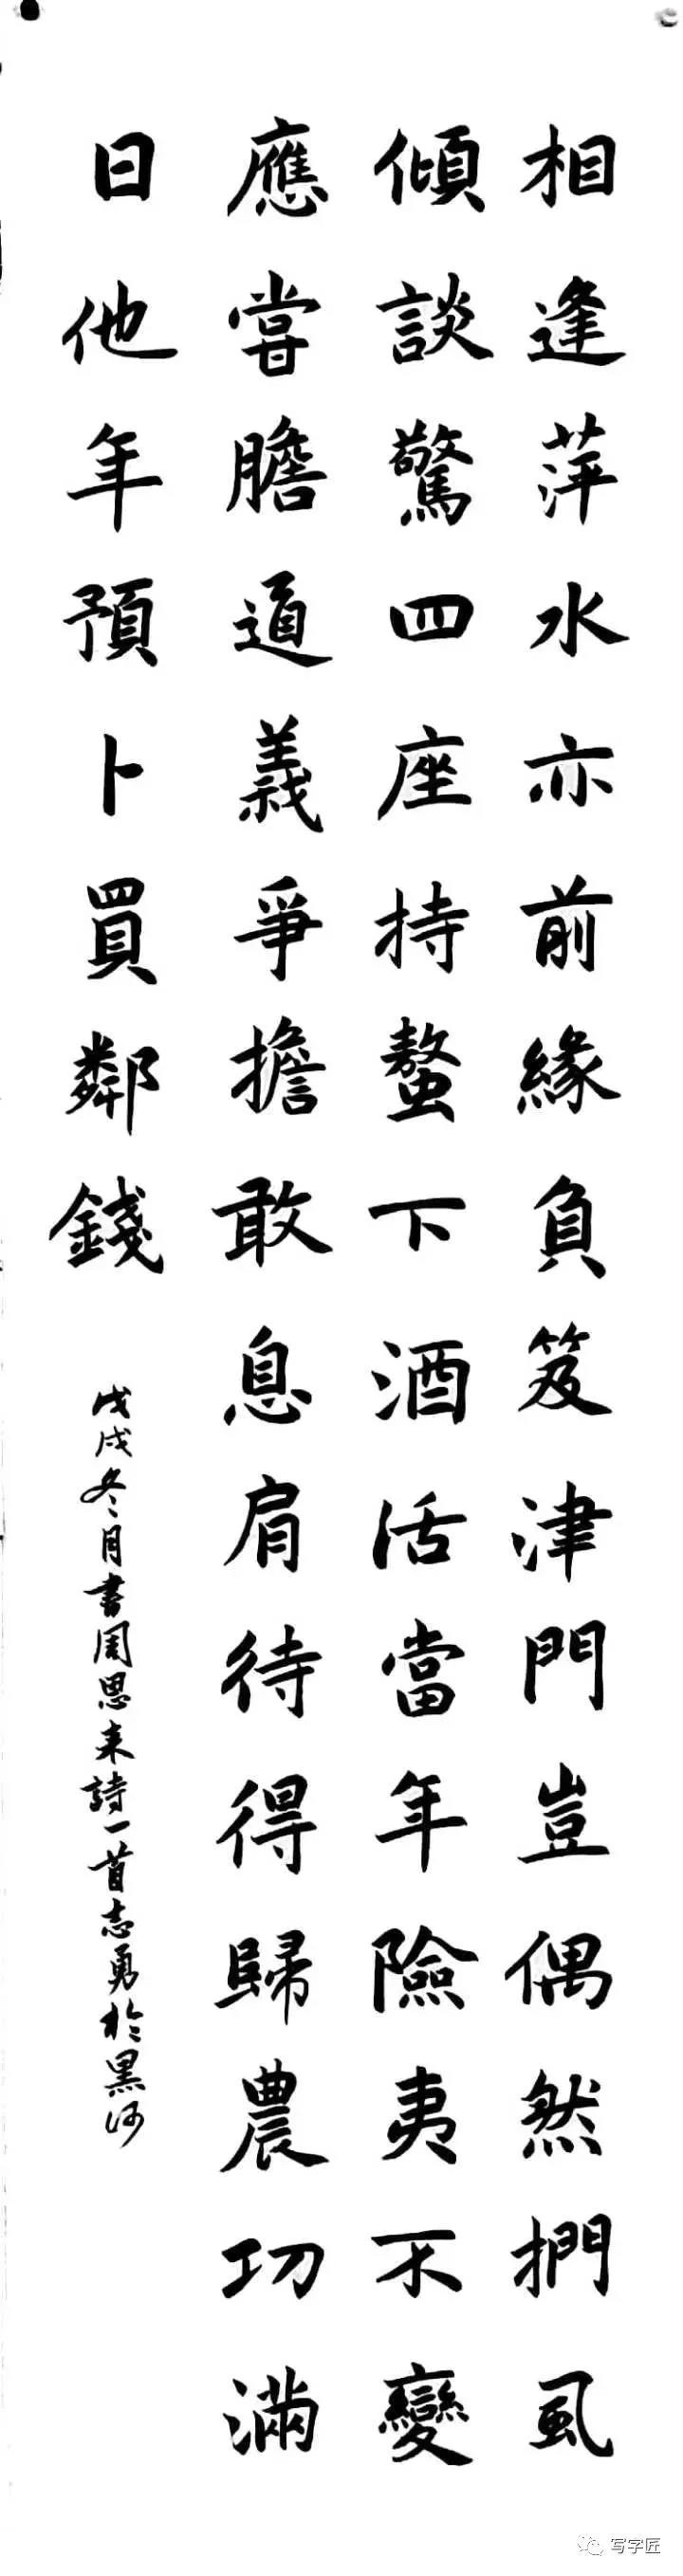 相逢萍水亦前緣負笈津門豈偶然捫虱
傾談驚四座持螯下酒活當年險夷不變
應甞膽道義爭擔敢息肩待得歸農功滿
日他年預卜買鄰錢
戊戌冬月書周恩来詩一首志勇於黑河
写字匠